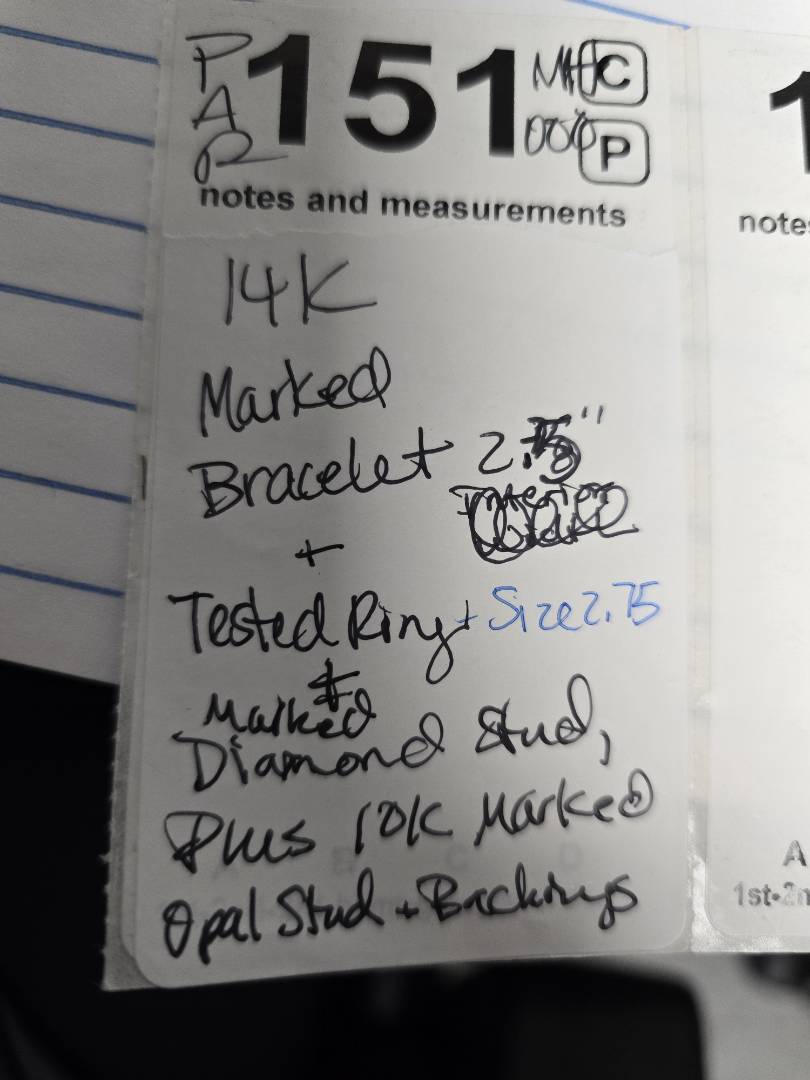 PAR 151 C
P
notes and measurements
14K
Marked
Bracelet 2. "
+
Tested Ring + Size 2.75
+
Marked
Diamond Stud,
Plus 10K Marked
Opal Stud + Backings
1
notes
A
1st•2n